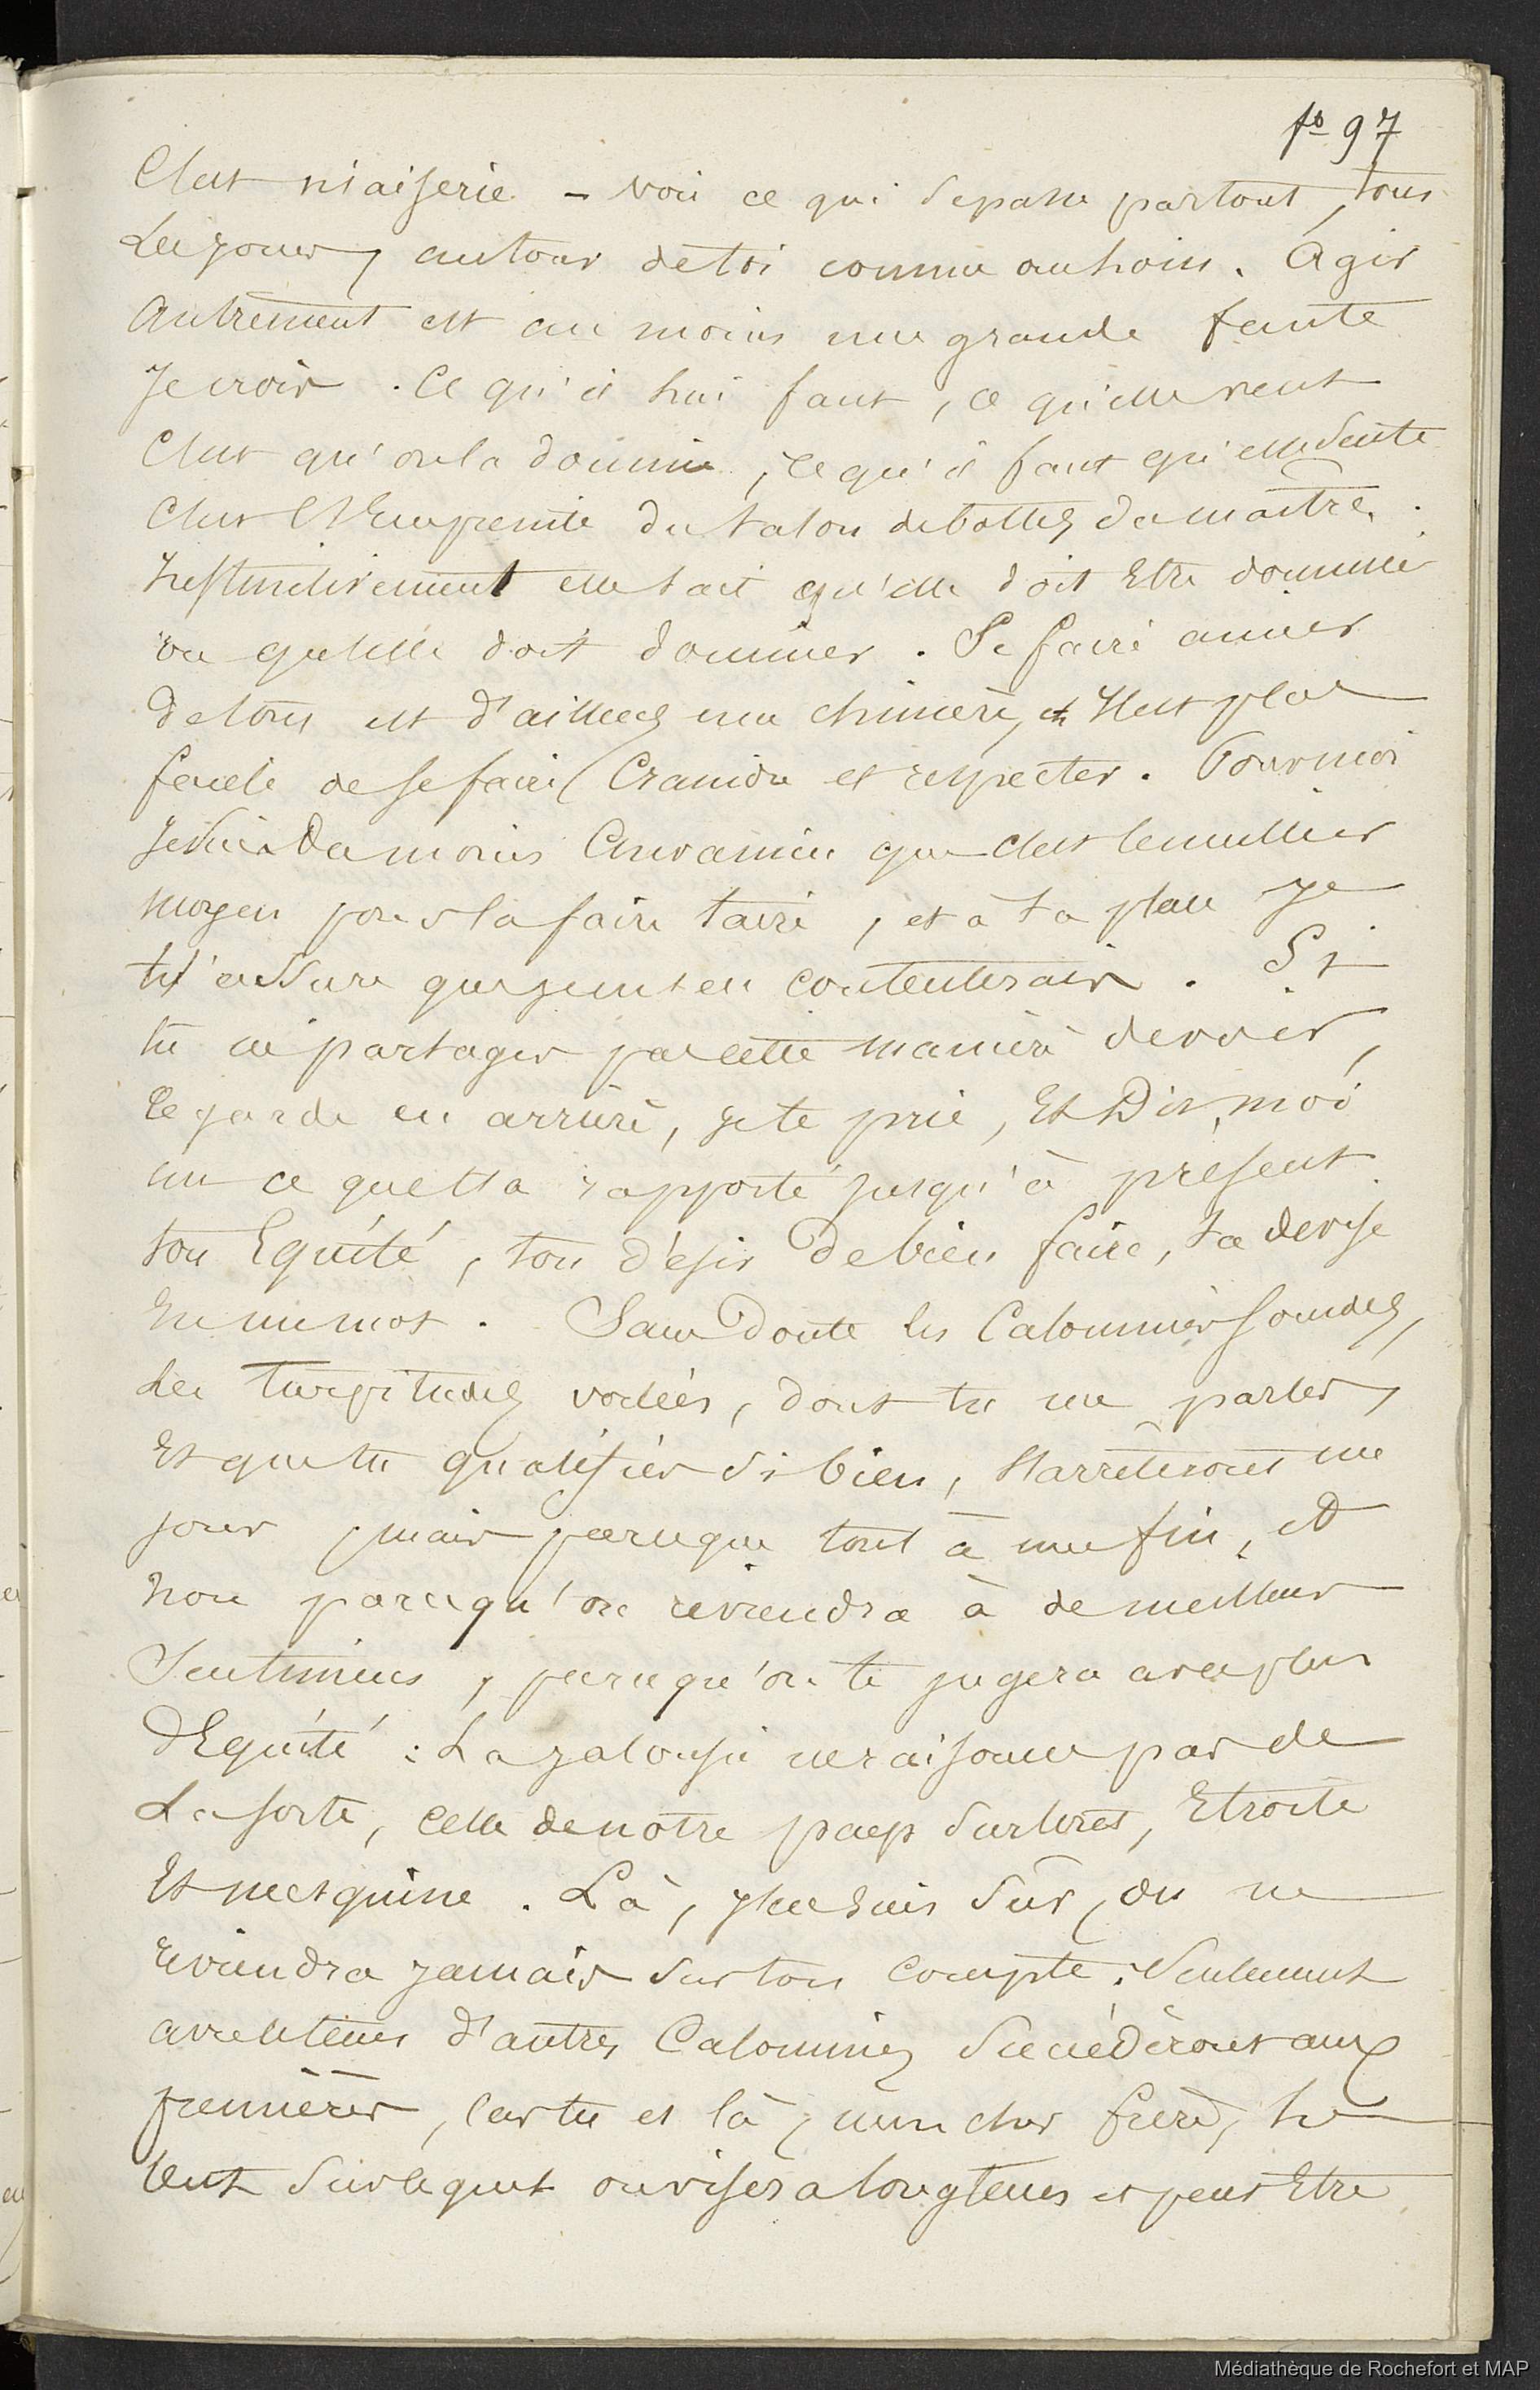 fo 97
C'est niaiserie - voir ce qui se passe partout, tous
Les jours, autour de toi comme au loin. Agir
Autrement est au moins une grande faute
Je crois. Ce qu'il lui faut, ce qu'elle veut
C'est qu'on la domine, ce qu'il faut qu'elle sente
C'est l'Empreinte du talon de bottes du maître.
Instinctivement elle sait qu'elle doit Etre dominée
ou qu'elle doit dominer. Se faire aimer
de tous est d'ailleurs une chimère, et Il est plus
facile de se faire Craindre et respecter. Pour moi
Je suis du moins Convaincu que c'est le meilleur
moyen pour la faire taire, et à ta place je
t'assure que je m'en contenterais. Si
tu ne partages pas cette manière de voir,
Regarde en arrière, je te prie, Et Dis, moi
un ce que t'a rapporté jusqu'à présent
ton Equité, ton désir De bien faire, ta devise
En un mot. Sans Doute les Calomnies sourdes,
Les Turpitudes voilées, dont tu me parles,
Et que tu qualifies si bien, s'arrêteront un
jour, mais parceque tout a une fin, et
non parcequ'on reviendra à de meilleurs
Sentimens, parcequ'on te jugera avec plus
d'Equité : La jalousie ne raisonne pas de
La sorte, celle de notre pays surtout, Etroite
Et mesquine. Là, j'en suis sûr, on ne
Reviendra jamais sur ton compte; Seulement
avec le tems d'autres Calomnies succèderont aux
premières, Car tu es là, mon cher frère, un
but sur lequel on visera longtems et peut Etre
Médiathèque de Rochefort et MAP